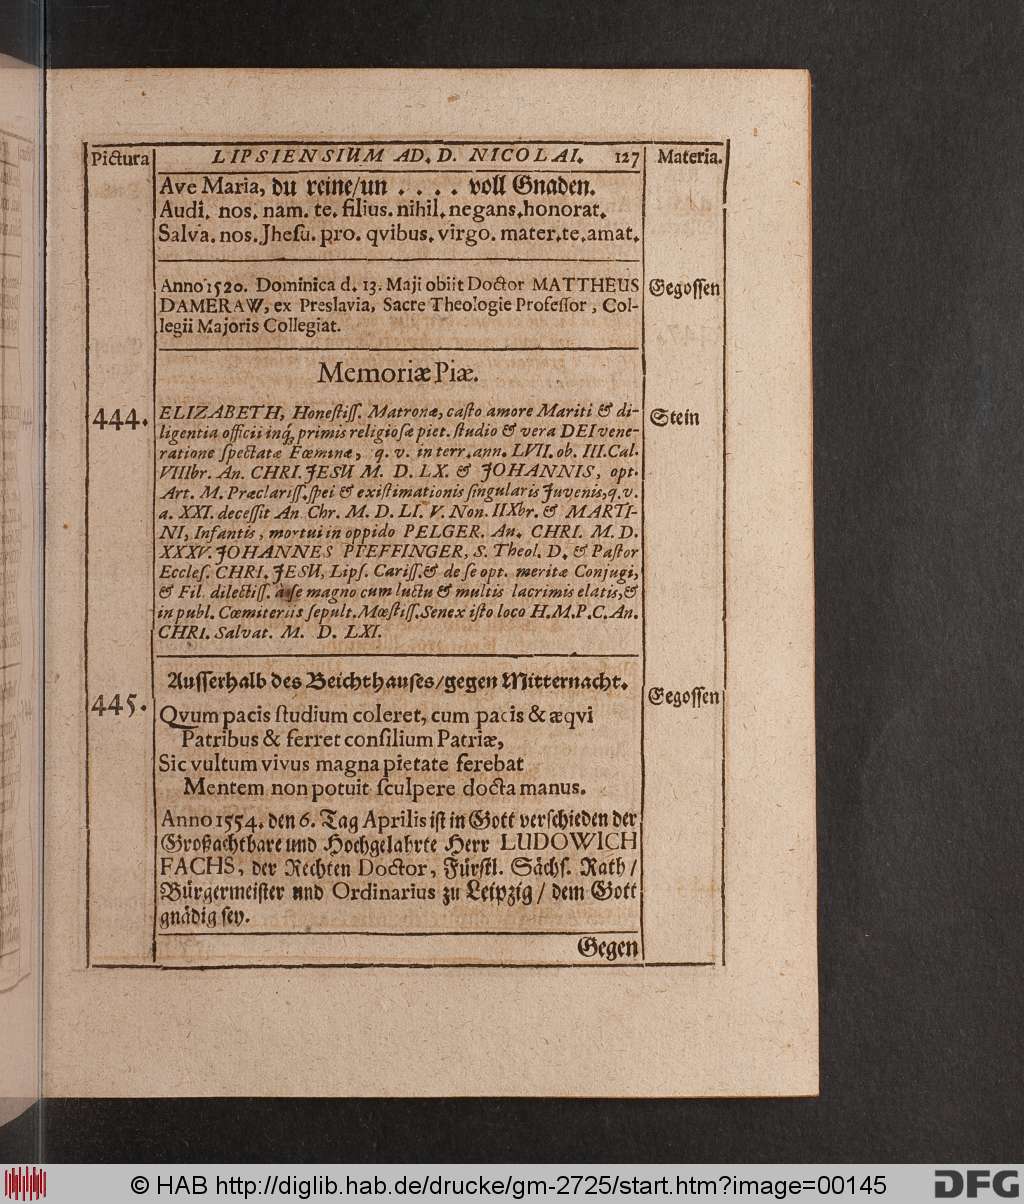 Pictura LIPSIENSIUM AD. D. NICOLAI. 127 Materia.
Ave Maria, du reine/un . . . . voll Gnaden.
Audi. nos. nam. te. filius. nihil. negans. honorat.
Salva. nos. Jhesu. pro. qvibus. virgo. mater. te. amat.
Anno 1520. Dominica d. 13. Maji obiit Doctor MATTHEUS Gegossen
DAMERAW, ex Preslavia, Sacre Theologie Professor, Col-
legii Majoris Collegiat.
Memoriæ Piæ.
444. ELIZABETH, Honestiss. Matronæ, casto amore Mariti & di- Stein
ligentia officii inq́; primis religiosæ piet. studio & vera DEI vene-
ratione spectatæ Fœminæ, q. v. in terr. ann. LVII. ob. III. Cal.
VIIIbr. An. CHRI. JESU M. D. LX. & JOHANNIS, opt.
Art. M. Præclariss. spei & existimationis singularis Juvenis, q. v.
a. XXI. decessit An. Chr. M. D. LI. V. Non. IIXbr. & MARTI-
NI, Infantis, mortui in oppido PELGER. An. CHRI. M. D.
XXXV. JOHANNES PFEFFINGER, S. Theol. D. & Pastor
Eccles. CHRI. JESU, Lips. Cariss. & de se opt. meritæ Conjugi,
& Fil. dilectiss. à se magno cum luctu & multis lacrimis elatis, &
in publ. Cœmiteriis sepult. Mœstiss. Senex isto loco H. M. P. C. An.
CHRI. Salvat. M. D. LXI.
Ausserhalb des Beichthauses/gegen Mitternacht.
445. Qvum pacis studium coleret, cum pacis & æqvi Gegossen
Patribus & ferret consilium Patriæ,
Sic vultum vivus magna pietate ferebat
Mentem non potuit sculpere docta manus.
Anno 1554. den 6. Tag Aprilis ist in Gott verschieden der
Großachtbare und Hochgelahrte Herr LUDOWICH
FACHS, der Rechten Doctor, Fürstl. Sächs. Rath/
Bürgermeister und Ordinarius zu Leipzig / dem Gott
gnädig sey.
Gegen
© HAB http://diglib.hab.de/drucke/gm-2725/start.htm?image=00145
DFG